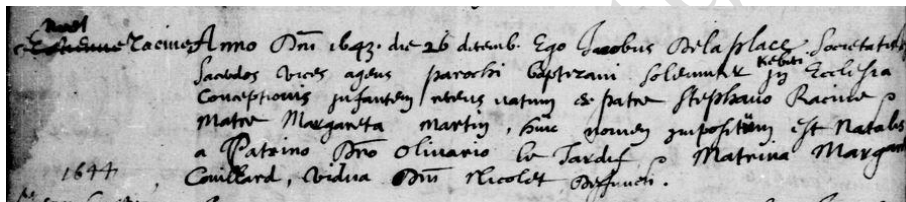 Noel
Estienne Racine Anno Dni 1643. die 26 decemb. Ego Jacobus Delaplace Societatis
Sacerdos vices agens parochi baptizavi solemniter Kebeci in Ecclesia
Conceptionis infantem recens natum ex patre Stephano Racine
Matre Margareta Martin, huic nomen impositum est Natalis
a Patrino Dno Olivario le Tardif, Matrina Margar
Couillard, vidua Dni Nicolet defuncti.
1644